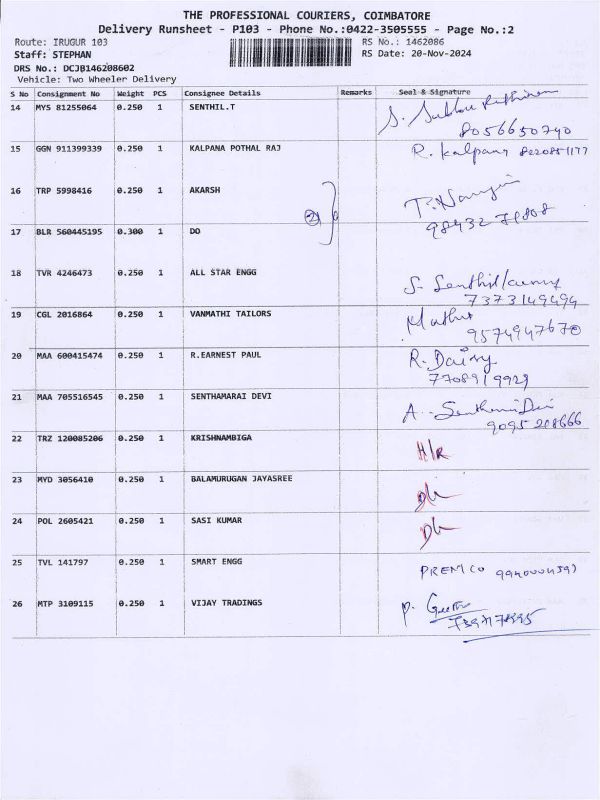 THE PROFESSIONAL COURIERS, COIMBATORE
Delivery Runsheet - P103 - Phone No.:0422-3505555 - Page No.:2
Route: IRUGUR 103
RS No.: 1462086
Staff: STEPHAN
RS Date: 20-Nov-2024
DRS No.: DCJB146208602
Vehicle: Two Wheeler Delivery
S No Consignment No Weight PCS Consignee Details Remarks Seal & Signature
14 MYS 81255064 0.250 1 SENTHIL.T S.
8056650740
15 GGN 911399339 0.250 1 KALPANA POTHAL RAJ R. Kalpana 8220851177
16 TRP 5998416 0.250 1 AKARSH
(2)
17 BLR 560445195 0.300 1 DO
18 TVR 4246473 0.250 1 ALL STAR ENGG S. Senthil
7373149494
19 CGL 2016864 0.250 1 VANMATHI TAILORS
9574947670
20 MAA 600415474 0.250 1 R.EARNEST PAUL R. Daisy
7708919929
21 MAA 705516545 0.250 1 SENTHAMARAI DEVI A.
9095208666
22 TRZ 120085206 0.250 1 KRISHNAMBIGA H/R
23 MYD 3056410 0.250 1 BALAMURUGAN JAYASREE
24 POL 2605421 0.250 1 SASI KUMAR
25 TVL 141797 0.250 1 SMART ENGG PREMCO
26 MTP 3109115 0.250 1 VIJAY TRADINGS P. Geetha